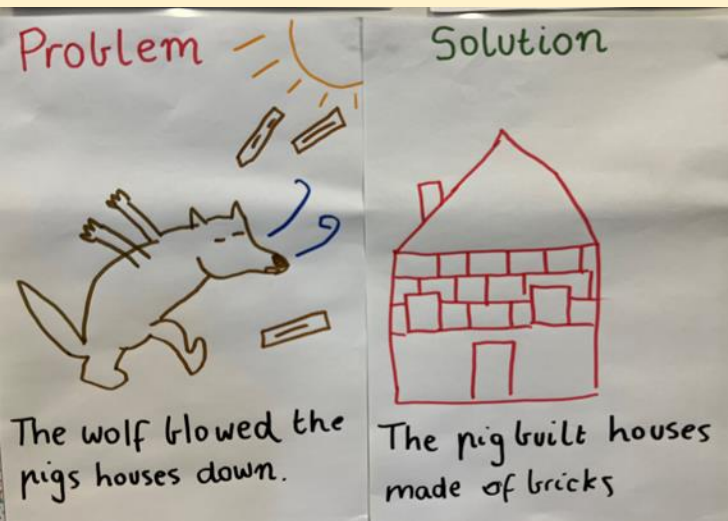 Problem
The wolf blowed the
pigs houses down.
Solution
The pig built houses
made of bricks